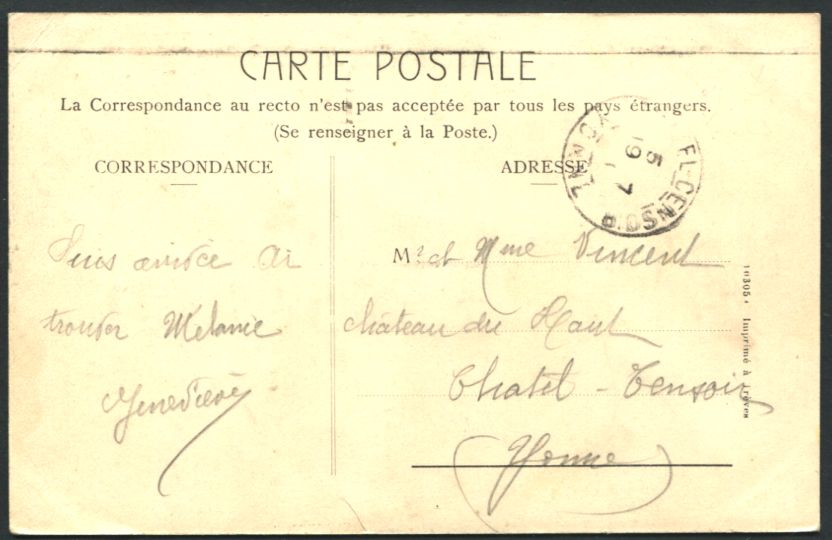 CARTE POSTALE
La Correspondance au recto n'est pas acceptée par tous les pays étrangers.
(Se renseigner à la Poste.)
CORRESPONDANCE
ADRESSE
EL-CENSOIR
5
19 7
Suis arrivée ai
trouver Melanie
Genevieve
Mr et Mme Vincent
château du Haut
Chatel - Censoir
(Yonne)
Imprimé à Trèves